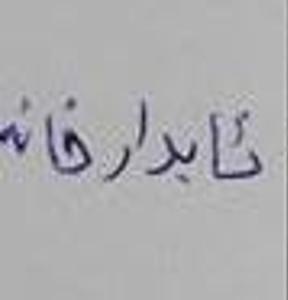 ئابدارخانە